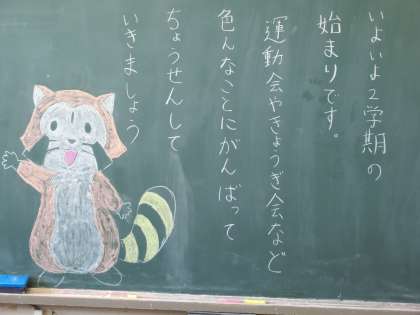 いよいよ2学期の
始まりです。
運動会やきょうぎ会など
色んなことにがんばって
ちょうせんして
いきましょう